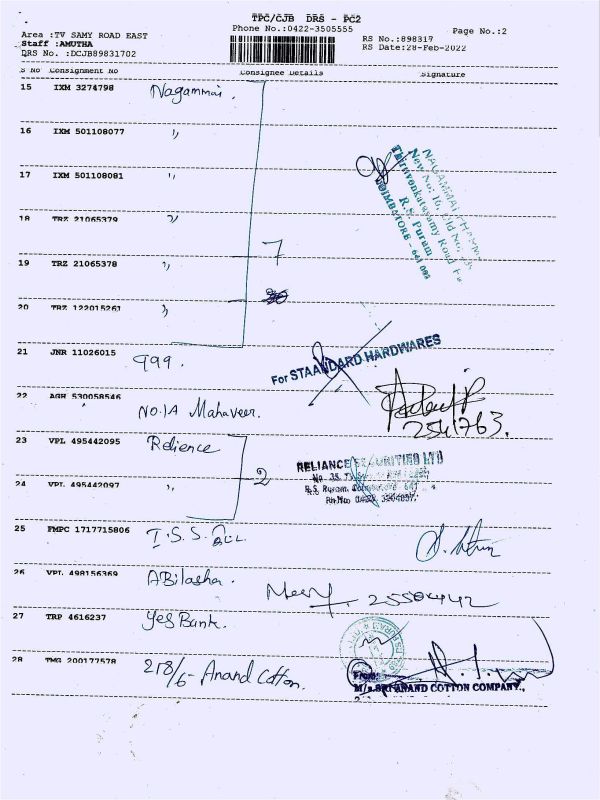 TPC/CJB DRS - PC2
Phone No.:0422-3505555
Page No.:2
Area :TV SAMY ROAD EAST
RS No.:898317
Staff :AMUTHA
RS Date:28-Feb-2022
DRS No. :DCJB89831702
S No Consignment No Consignee Details Signature
15 IXM 3274798 Nagammai.
16 IXM 501108077 ''
17 IXM 501108081 ''
NAGAMMAI
New No: 16, Old No.
Thiruvenkatasamy Road
R.S. Puram
COIMBATORE - 641 002
18 TRZ 21065379 ''
7
19 TRZ 21065378 ''
20 TRZ 122015261 ''
21 JNR 11026015 999.
For STAANDARD HARDWARES
22 AGH 530058546 No.1A Mahaveer.
2541763.
23 VPL 495442095 Relience
2
RELIANCE SECURITIES LTD
24 VPL 495442097 ''
R.S. Puram
25 FMPC 1717715806 I.S.S.
26 VPL 498156369 ABilasha.
27 TRP 4616237 Yes Bank.
28 TMG 200177578 218/6- Anand Cotton.
From:
M/s.SRI ANAND COTTON COMPANY.,